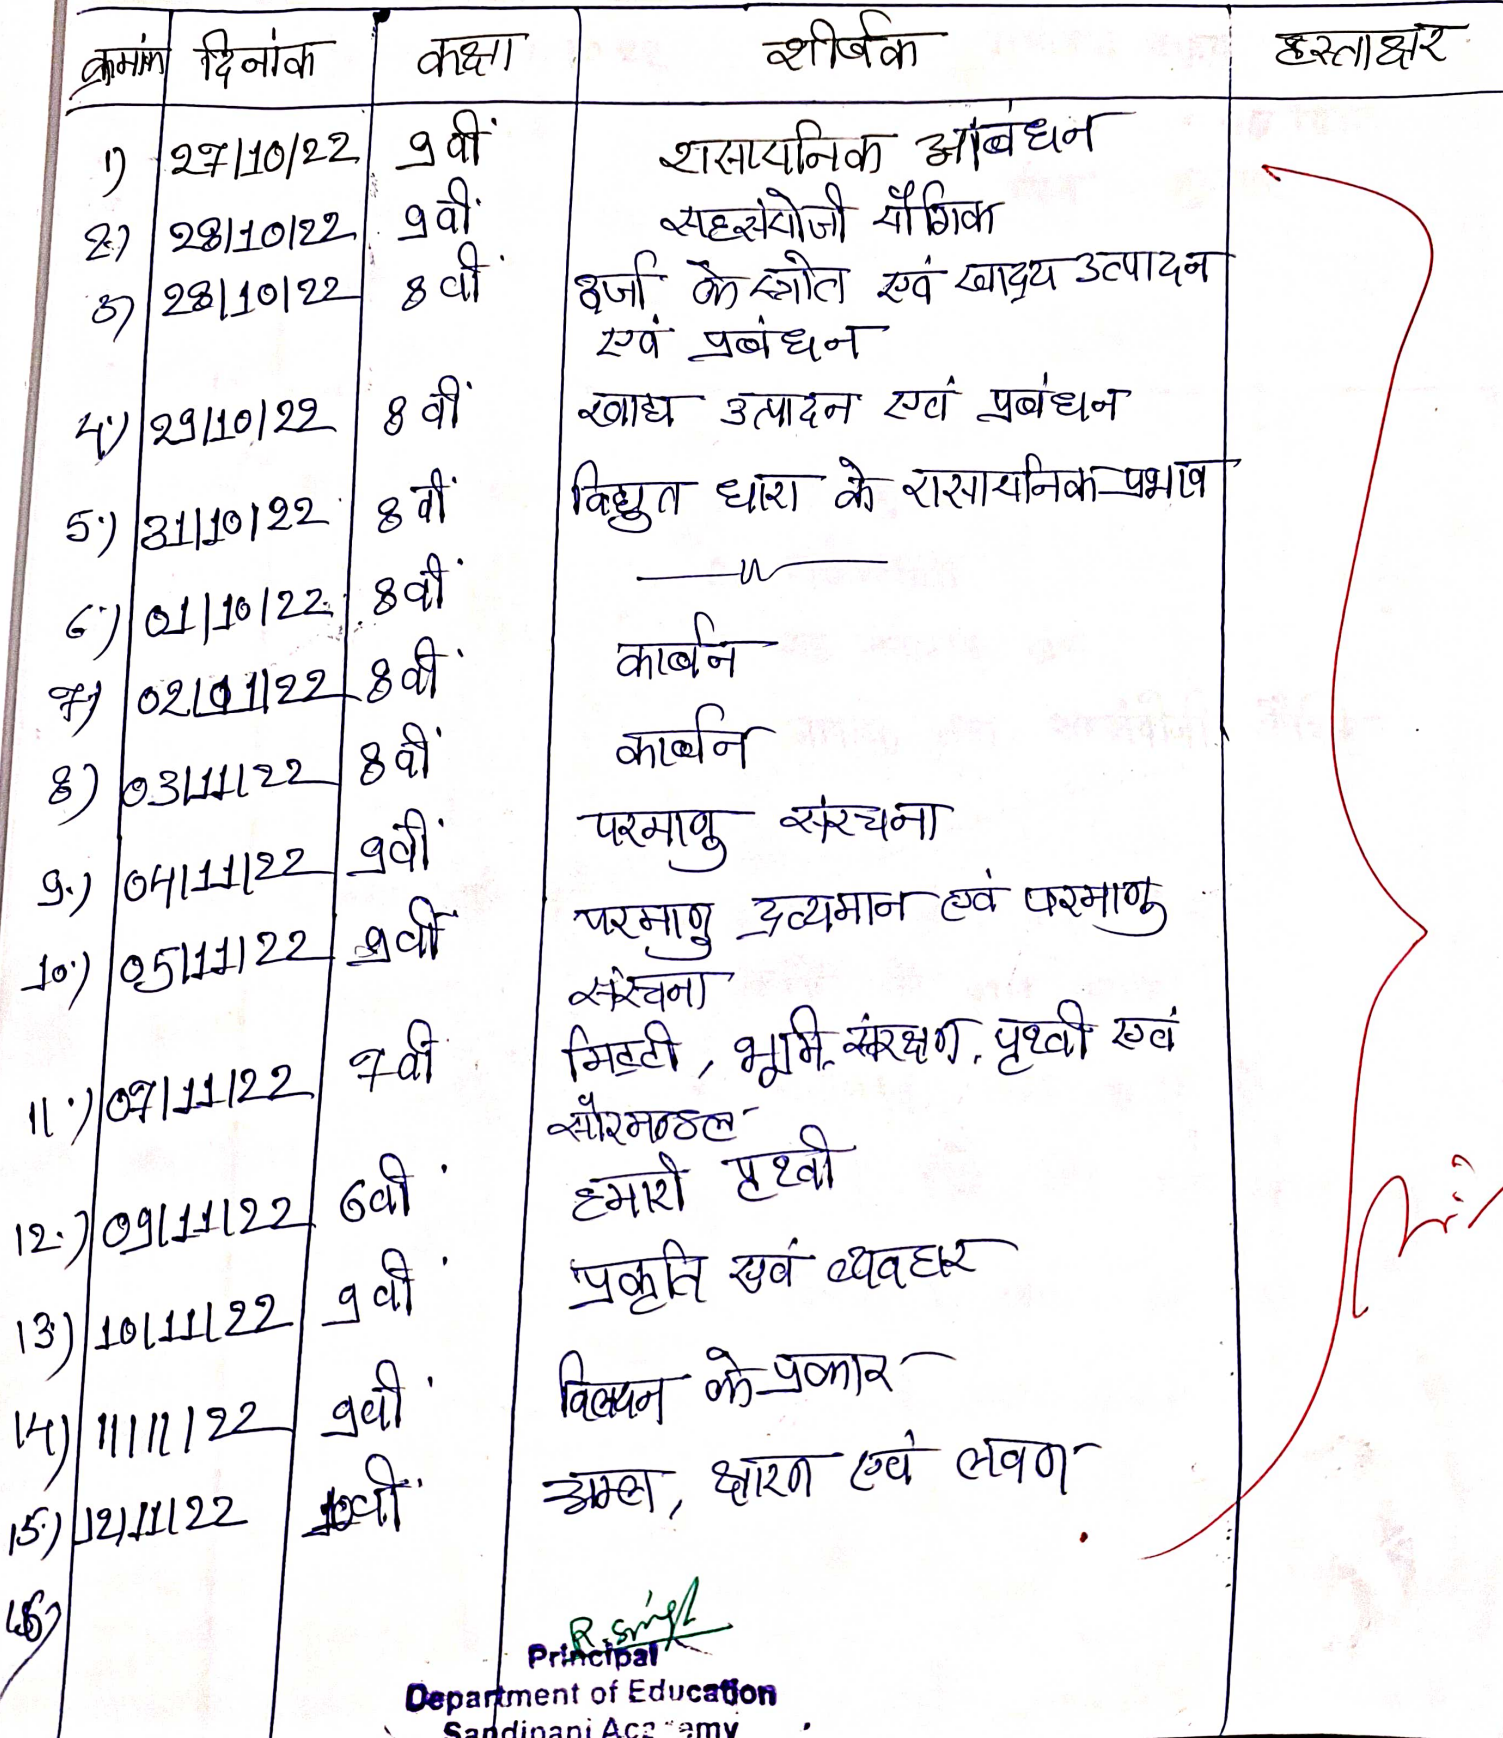 क्रमांक दिनांक कक्षा शीर्षक हस्ताक्षर
1) 27/10/22 9वीं रासायनिक आबंधन
2) 28/10/22 9वीं सहसंयोजी यौगिक
3) 28/10/22 8वीं ऊर्जा के स्त्रोत एवं खाद्य उत्पादन
एवं प्रबंधन
4) 29/10/22 8वीं खाद्य उत्पादन एवं प्रबंधन
5) 31/10/22 8वीं विद्युत धारा के रासायनिक प्रभाव
6) 01/10/22 8वीं —〃—
7) 02/01/22 8वीं कार्बन
8) 03/11/22 8वीं कार्बन
9.) 04/11/22 9वीं परमाणु संरचना
10.) 05/11/22 9वीं परमाणु द्रव्यमान एवं परमाणु
संरचना
11.) 07/11/22 7वी मिट्टी, भूमि संरक्षण, पृथ्वी एवं
सौरमण्डल
12.) 09/11/22 6वीं हमारी पृथ्वी
13) 10/11/22 9वीं प्रकृति एवं व्यवहार
14) 11/11/22 9वीं विलयन के प्रकार
15.) 12/11/22 10वीं अम्ल, क्षारन एवं लवण
16)
R. Singh
Principal
Department of Education
Sandipani Academy